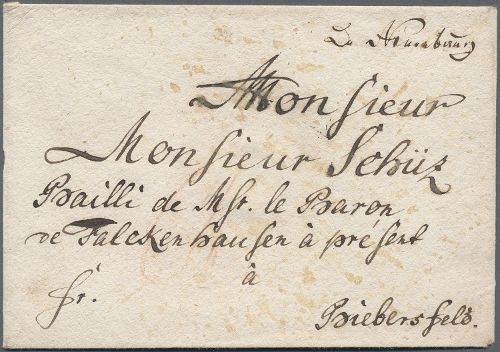 De Nuremburg
Monsieur
Monsieur Schüz
Bailli de Msr. le Baron
de Falckenhausen à présent
à
fr. Biebersfeld.